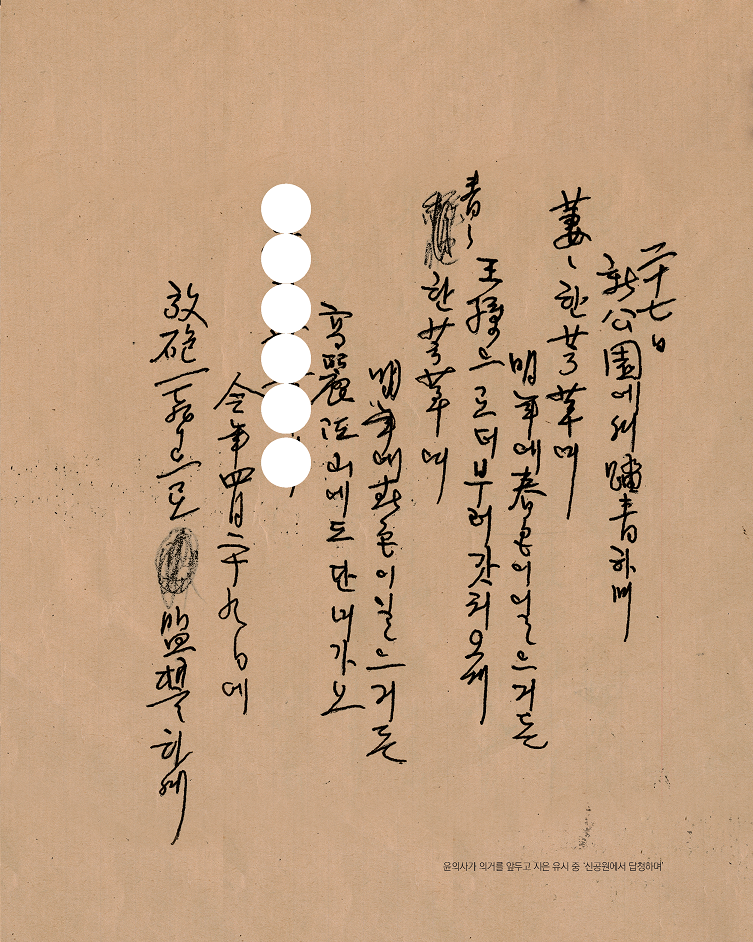 二十七日
新公園에서 踏靑하며
萋〻한 芳草여
明年에 春色이 일으거든
王孫으로 더부러 갓치 오게
靑〻한 芳草여
明年에 春色이 일으거든
高麗江山에도 단녀가오
今年 四月 二十九日에
放砲一聲으로 盟誓하세
윤의사가 의거를 앞두고 지은 유시 중 '신공원에서 답청하며'